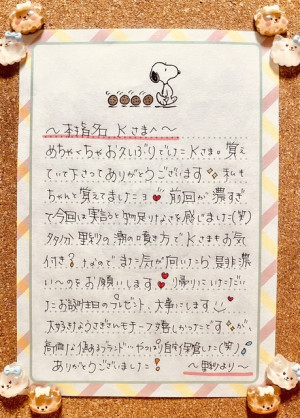 ～本指名 Kさまへ～
めちゃくちゃお久しぶりでしたKさま。覚え
ていて下さってありがとうございます 私も
ちゃんと覚えてましたヨ 前回が濃すぎ
て今回は実言うと物足りなさを感じました(笑)
多分 の潮の噴き方でKさまもお気
付き? なので また気が向いたら是非濃
い～のをお願いします 帰りにいただい
たお誕生日のプレゼント、大事にします
大好きなうさぎさんモチーフで嬉しかったです が、
高価な ブランド やっぱり 保管した(笑)
ありがとうございました!
～ より～